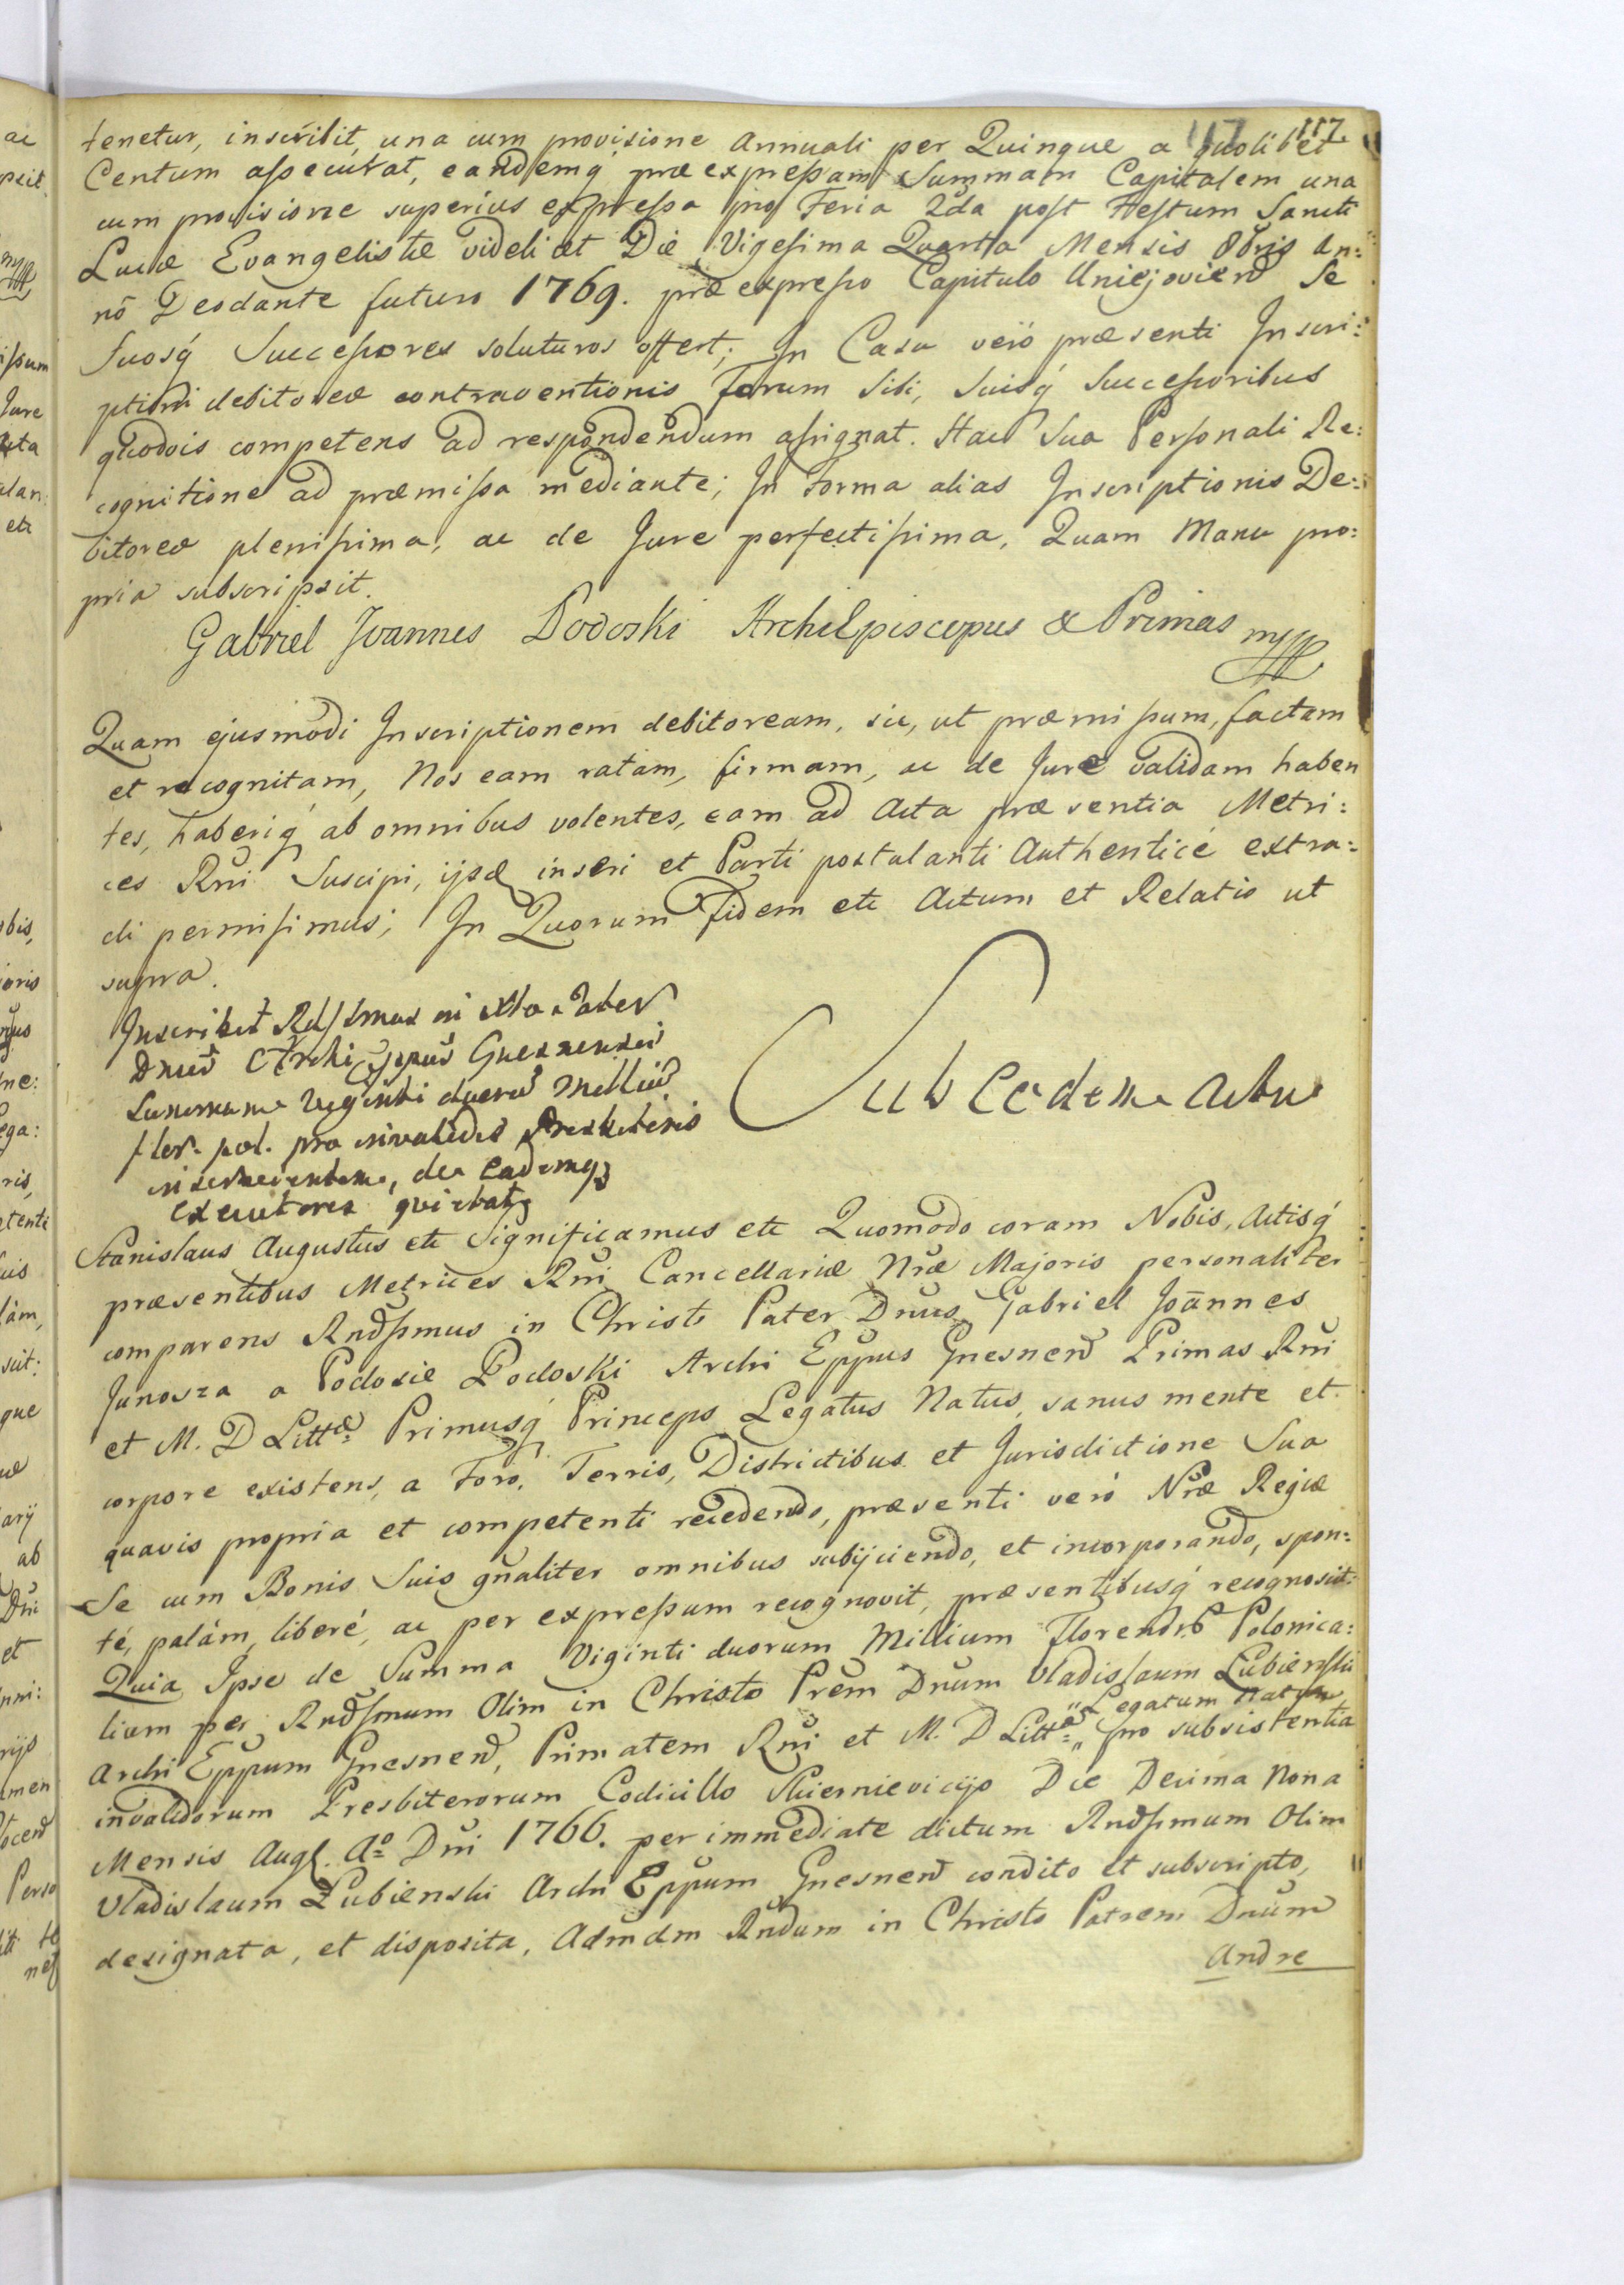 117.
tenetur, inscribit, una cum provisione Annuali per Quinque a quolibet
Centum assecurat, eandemq́ præexpressam Summam Capitalem una
cum provisione superius expressa pro Feria 2da post Festum Sancti
Lucæ Evangelistæ videlicet Die Vigesima Quarta Mensis 8bris An:
nō Deodante futuro 1769. præexpresso Capitulo Uniejovien Se
suosq́ Successores soluturos offert; In Casu verò præsenti Inscri:
ptioni debitoreæ contraventionis Forum Sibi, Suisq́ Successoribus
quodvis competens ad respondendum assignat. Hac Sua Personali Re:
cognitione ad præmissa mediante; In Forma alias Inscriptionis De:
bitoreæ plenissima, ac de Jure perfectissima, Quam Manu pro:
pria subscripsit.
Gabriel Joannes Podoski ArchiEpiscopus & Primas mpp
Quam ejusmodi Inscriptionem debitoream, sic, ut præmissum, factam
et recognitam, Nos eam ratam, firmam, ac de Jure validam haben
tes, haberiq́ ab omnibus volentes, eam ad Acta præsentia Metri:
ces Rñi Suscipi, ijsq́ inseri et Parti postulanti Authenticè extra:
di permisimus; In Quorum Fidem etc Actum et Relatio ut
supra.
Dnus Archi Eppus Gnesnensis
Summam viginti duorum Millium
flor. pol. pro invalidis Presbiteris
inservientem, de eademq́
executores quietat
Sub Eodem Actu
Stanislaus Augustus etc Significamus etc Quomodo coram Nobis, Actisq́
præsentibus Metrices Rñi Cancellariæ Nræ Majoris personaliter
comparens Rndssmus in Christo Pater Dnus Gabriel Joānnes
Junosza a Podosie Podoski Archi Eppus Gnesnen Primas Rñi
et M. D Littæ Primusq́ Princeps Legatus Natus, sanus mente et
corpore existens, a Foro, Terris, Districtibus et Jurisdictione Sua
quavis propria et competenti recedendo, præsenti verò Nræ Regiæ
Se cum Bonis Suis gnaliter omnibus subijciendo, et incorporando, spon:
tè, palàm, liberè, ac per expressum recognovit, præsentibusq́ recognoscit:
Quia Ipse de Summa Viginti duorum Millium Florenorum Polonica:
lium per Rndssmum Olim in Christo Prem Dnum Vladislaum Łubienski
Legatum Natum
Archi Eppum Gnesnen, Primatem Rñi et M. D Littæ " pro subsistentia
invalidorum Presbiterorum Codicillo Skiernievicijs Die Decima Nona
Mensis Augl. Aō Dni 1766. per immediate dictum Rndssmum Olim
Vladislaum Łubienski Archi Eppum Gnesnen condito et subscripto,
designata, et disposita, Admdm Rndum in Christo Patrem Dnum
Andre